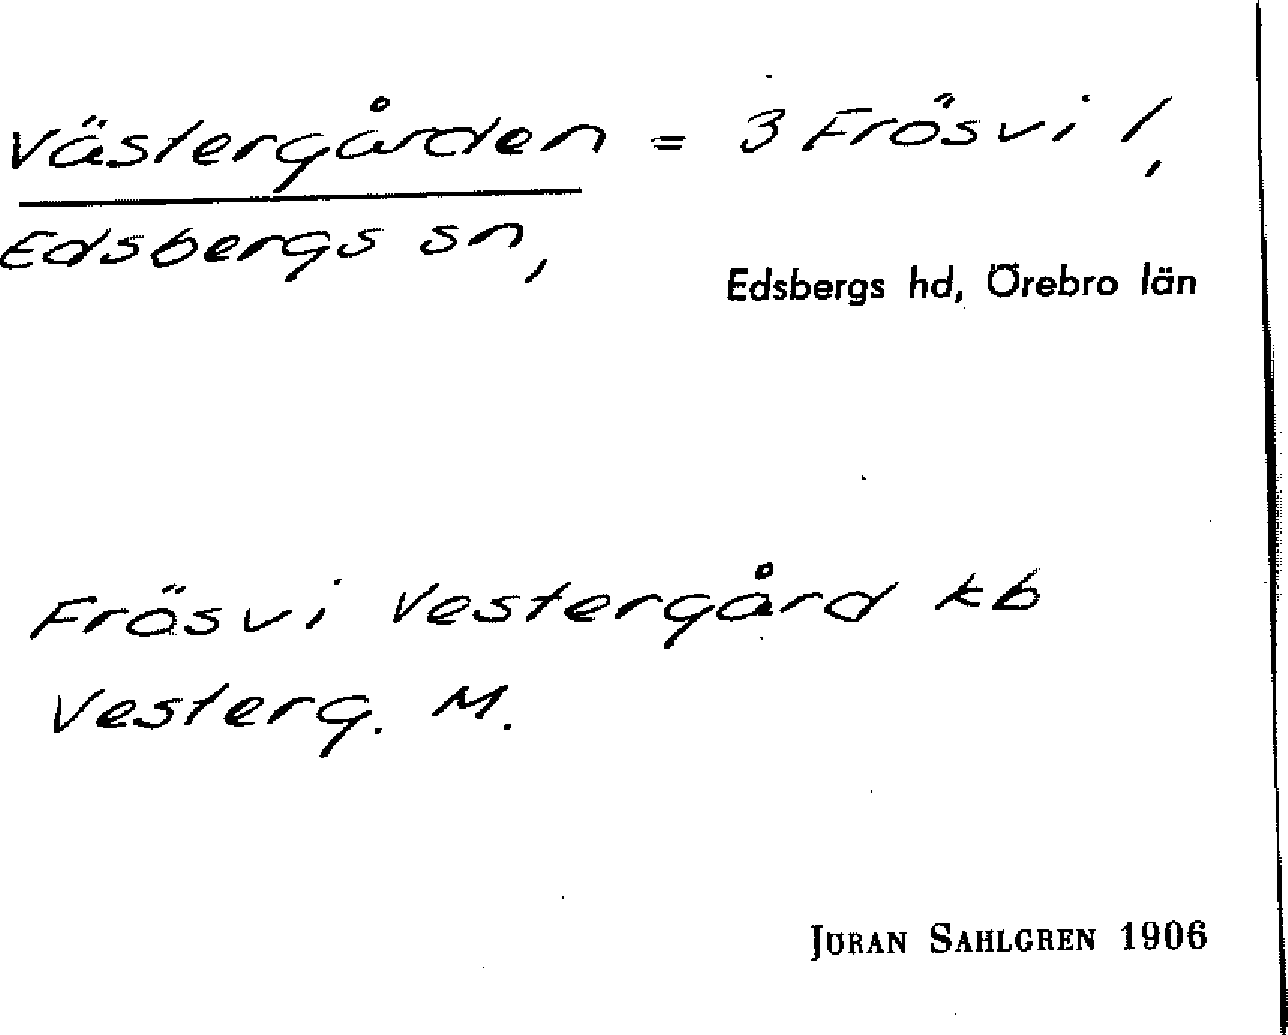 Västergården = 3 Frösvi 1,
Edsbergs sn,
Edsbergs hd, Örebro län
Frösvi Vestergård kb
Vesterg. M.
Jöran Sahlgren 1906